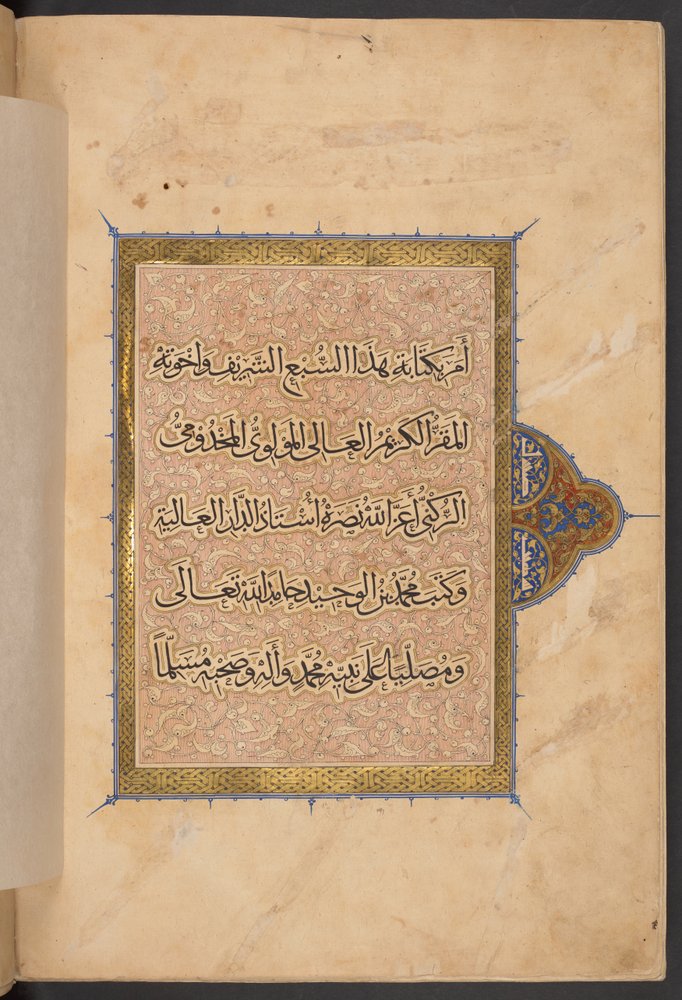 أَمَرَ بِكِتَابَةِ هَذَا السُّبْعِ الشَّرِيفِ وَإِخْوَتِهْ
المَقَرُّ الكَرِيمُ العَالِى المَوْلَوِىُّ المَخْدُومِىُّ
الرُّكْنِىُّ أَعَزَّ اللهُ نَصْرَهُ أُسْتَاذُ الدَّارِ العَالِيَةِ
وَكَتَبَ مُحَمَّدُ بْنُ الوَحِيدِ حَامِدًا لِلَّهِ تَعَالَى
وَمُصَلِّيًا عَلَى نَبِيِّهِ مُحَمَّدٍ وَأَلِهِ وَصَحْبِهِ مُسَلِّمًا